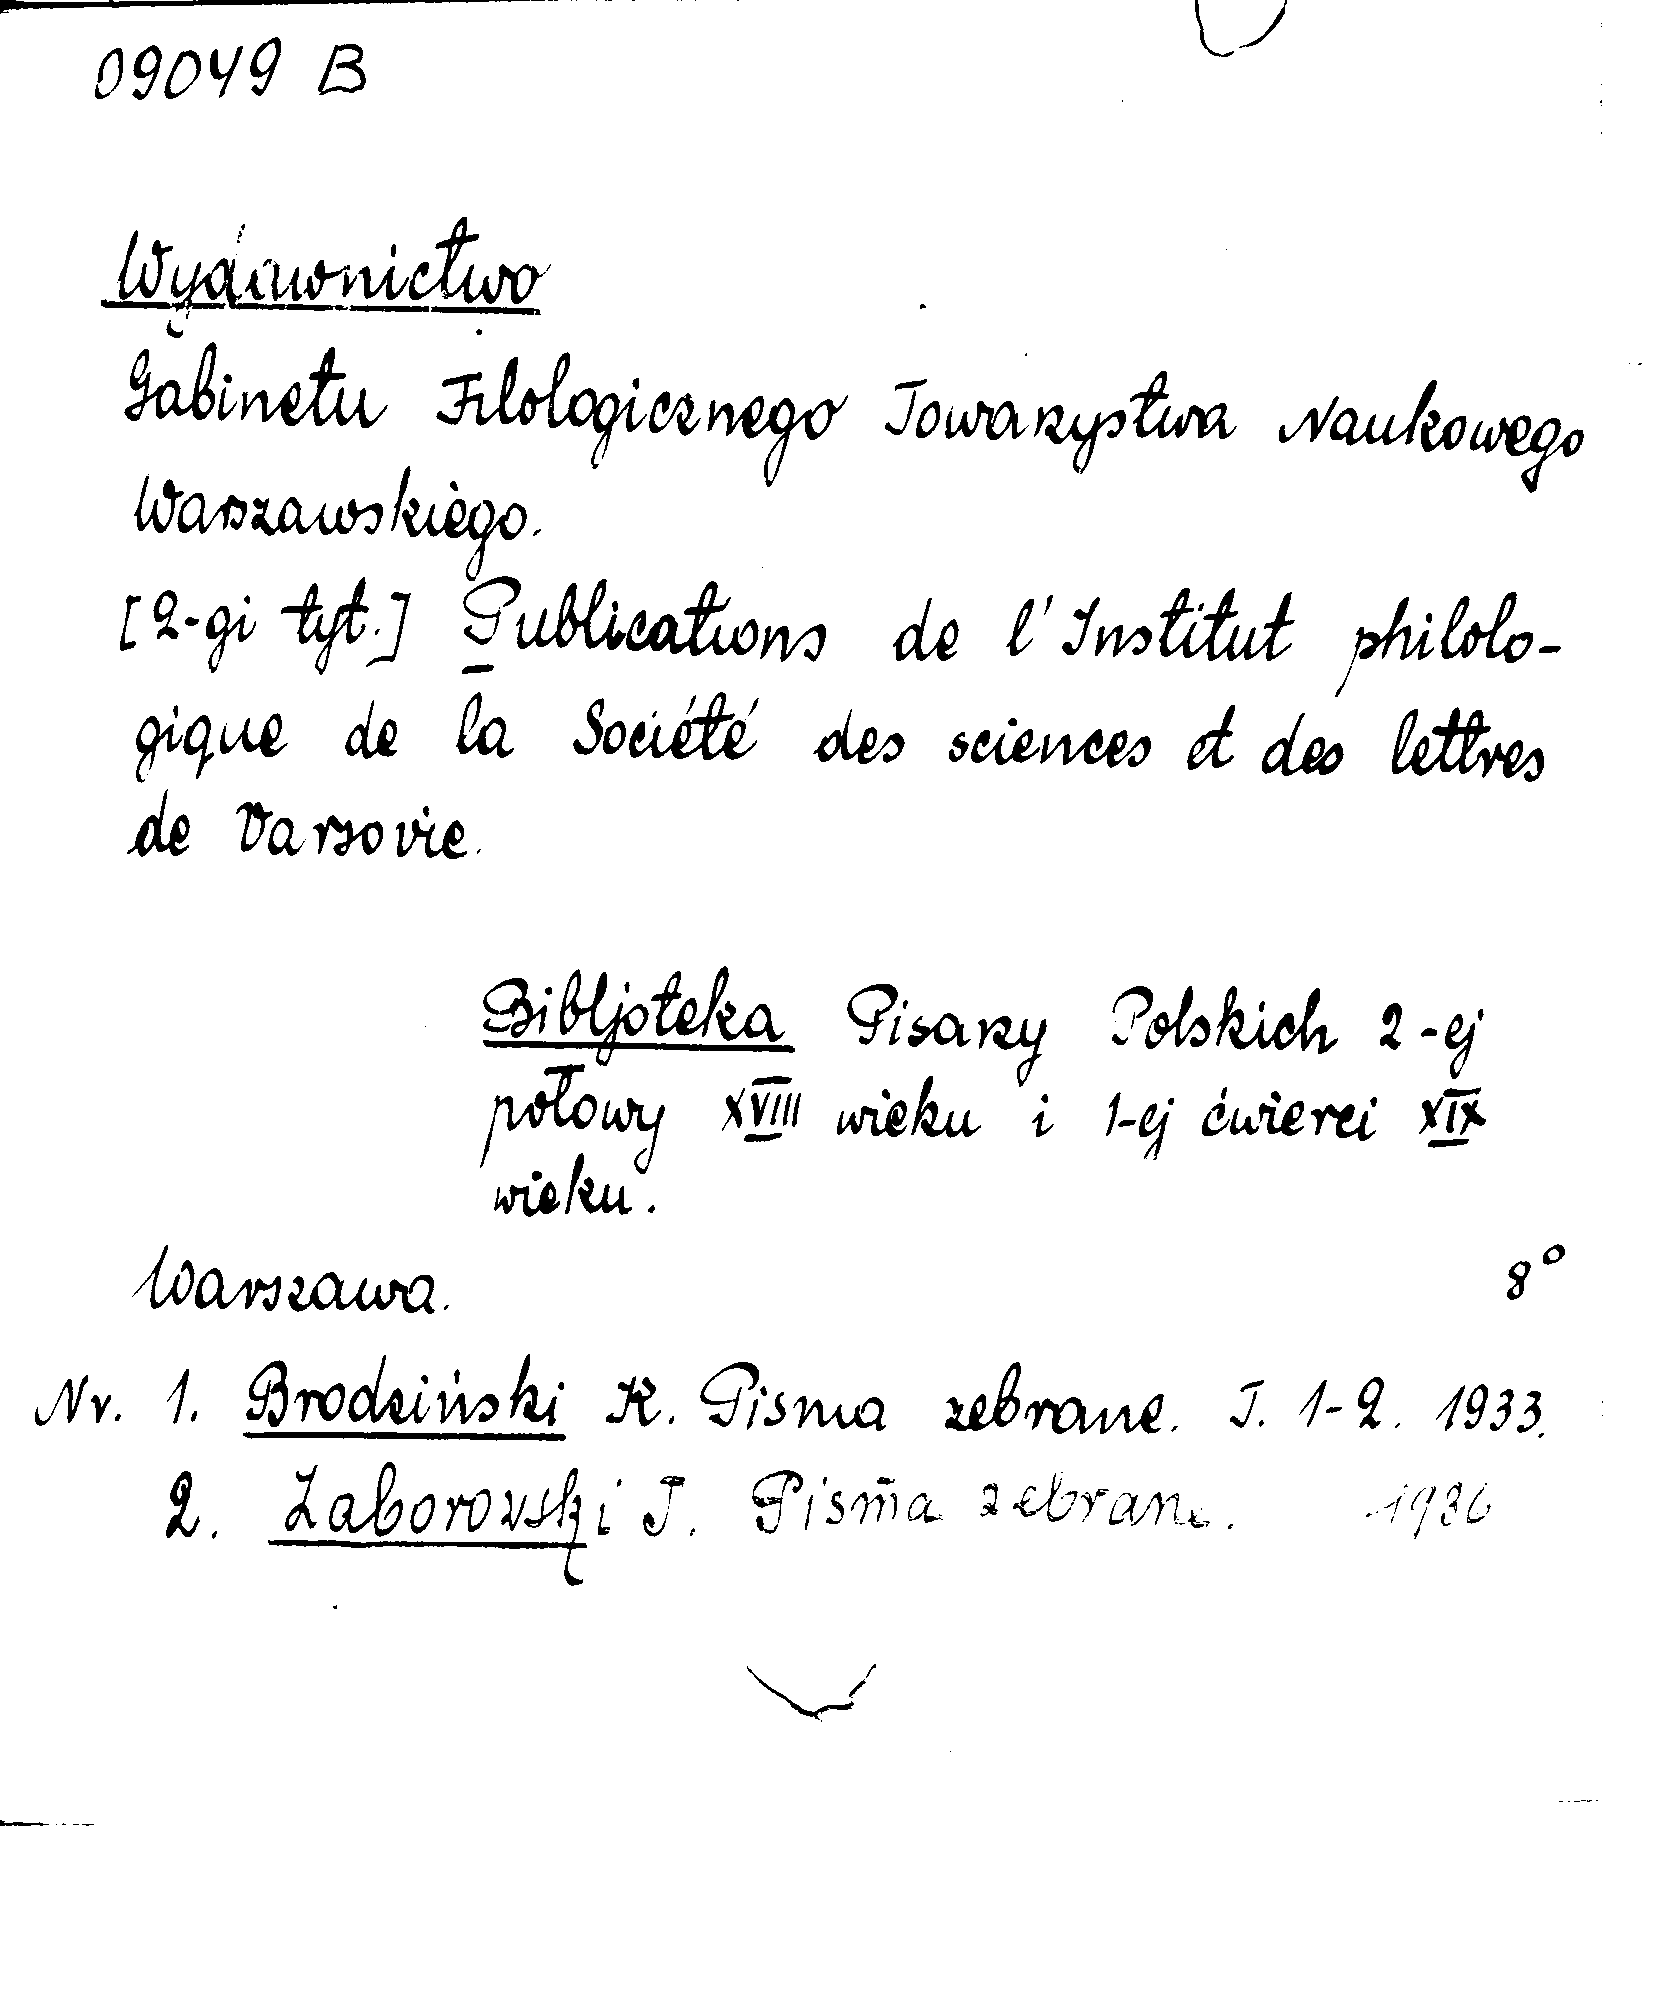 09049 B
Wydawnictwo
Gabinetu Filologicznego Towarzystwa Naukowego
Warszawskiego.
[2-gi tyt.] Publications de l'Institut philolo-
gique de la Société des sciences et des lettres
de Varsovie.
Bibljoteka Pisarzy Polskich 2-ej
połowy XVIII wieku i 1-ej ćwierci XIX
wieku.
Warszawa. 8°
Nr. 1. Brodziński K. Pisma zebrane. T. 1-2. 1933.
2. Zaborowski T. Pisma zebrane. 1936